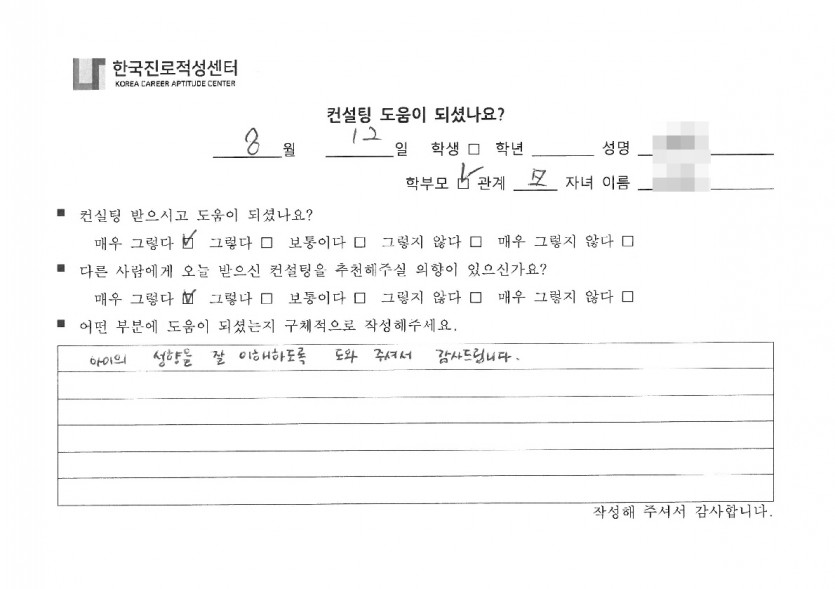 한국진로적성센터
KOREA CAREER APTITUDE CENTER
컨설팅 도움이 되셨나요?
8 월 12 일 학생 □ 학년 성명
학부모 ☑ 관계 모 자녀 이름
■ 컨설팅 받으시고 도움이 되셨나요?
매우 그렇다 ☑ 그렇다 □ 보통이다 □ 그렇지 않다 □ 매우 그렇지 않다 □
■ 다른 사람에게 오늘 받으신 컨설팅을 추천해주실 의향이 있으신가요?
매우 그렇다 ☑ 그렇다 □ 보통이다 □ 그렇지 않다 □ 매우 그렇지 않다 □
■ 어떤 부분에 도움이 되셨는지 구체적으로 작성해주세요.
아이의 성향을 잘 이해하도록 도와 주셔서 감사드립니다.
작성해 주셔서 감사합니다.